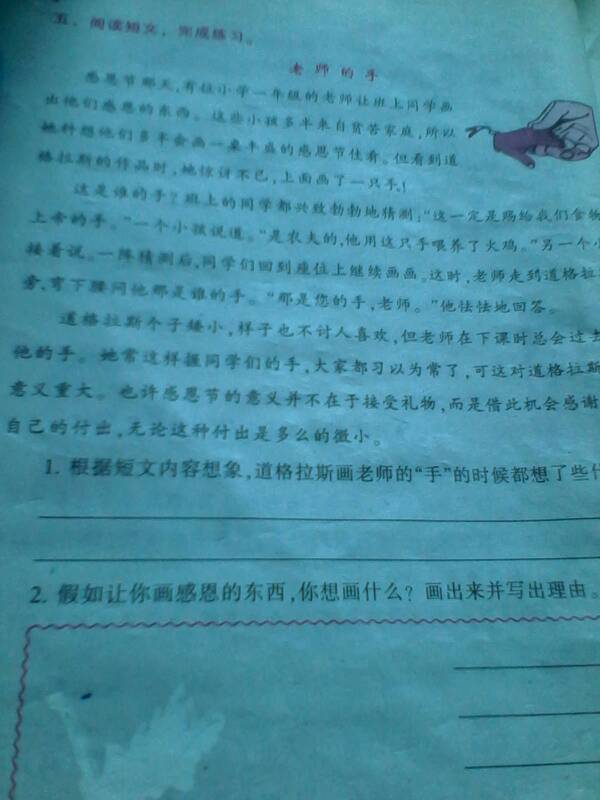 五、阅读短文，完成练习。
老师的手
感恩节那天，有位小学一年级的老师让班上同学画
出他们感恩的东西。这些小孩多半来自贫苦家庭，所以
她料想他们多半会画一桌丰盛的感恩节佳肴。但看到道
格拉斯的作品时，她惊讶不已，上面画了一只手！
这是谁的手？班上的同学都兴致勃勃地猜测：“这一定是赐给我们食物
上帝的手。”一个小孩说道。“是农夫的，他用这只手喂养了火鸡。”另一个小
接着说。一阵猜测后，同学们回到座位上继续画画。这时，老师走到道格拉
旁，弯下腰问他那是谁的手。“那是您的手，老师。”他怯怯地回答。
道格拉斯个子矮小，样子也不讨人喜欢，但老师在下课时总会过去
他的手。她常这样握同学们的手，大家都习以为常了，可这对道格拉斯
意义重大。也许感恩节的意义并不在于接受礼物，而是借此机会感谢
自己的付出，无论这种付出是多么的微小。
1. 根据短文内容想象，道格拉斯画老师的“手”的时候都想了些什
2. 假如让你画感恩的东西，你想画什么？画出来并写出理由。